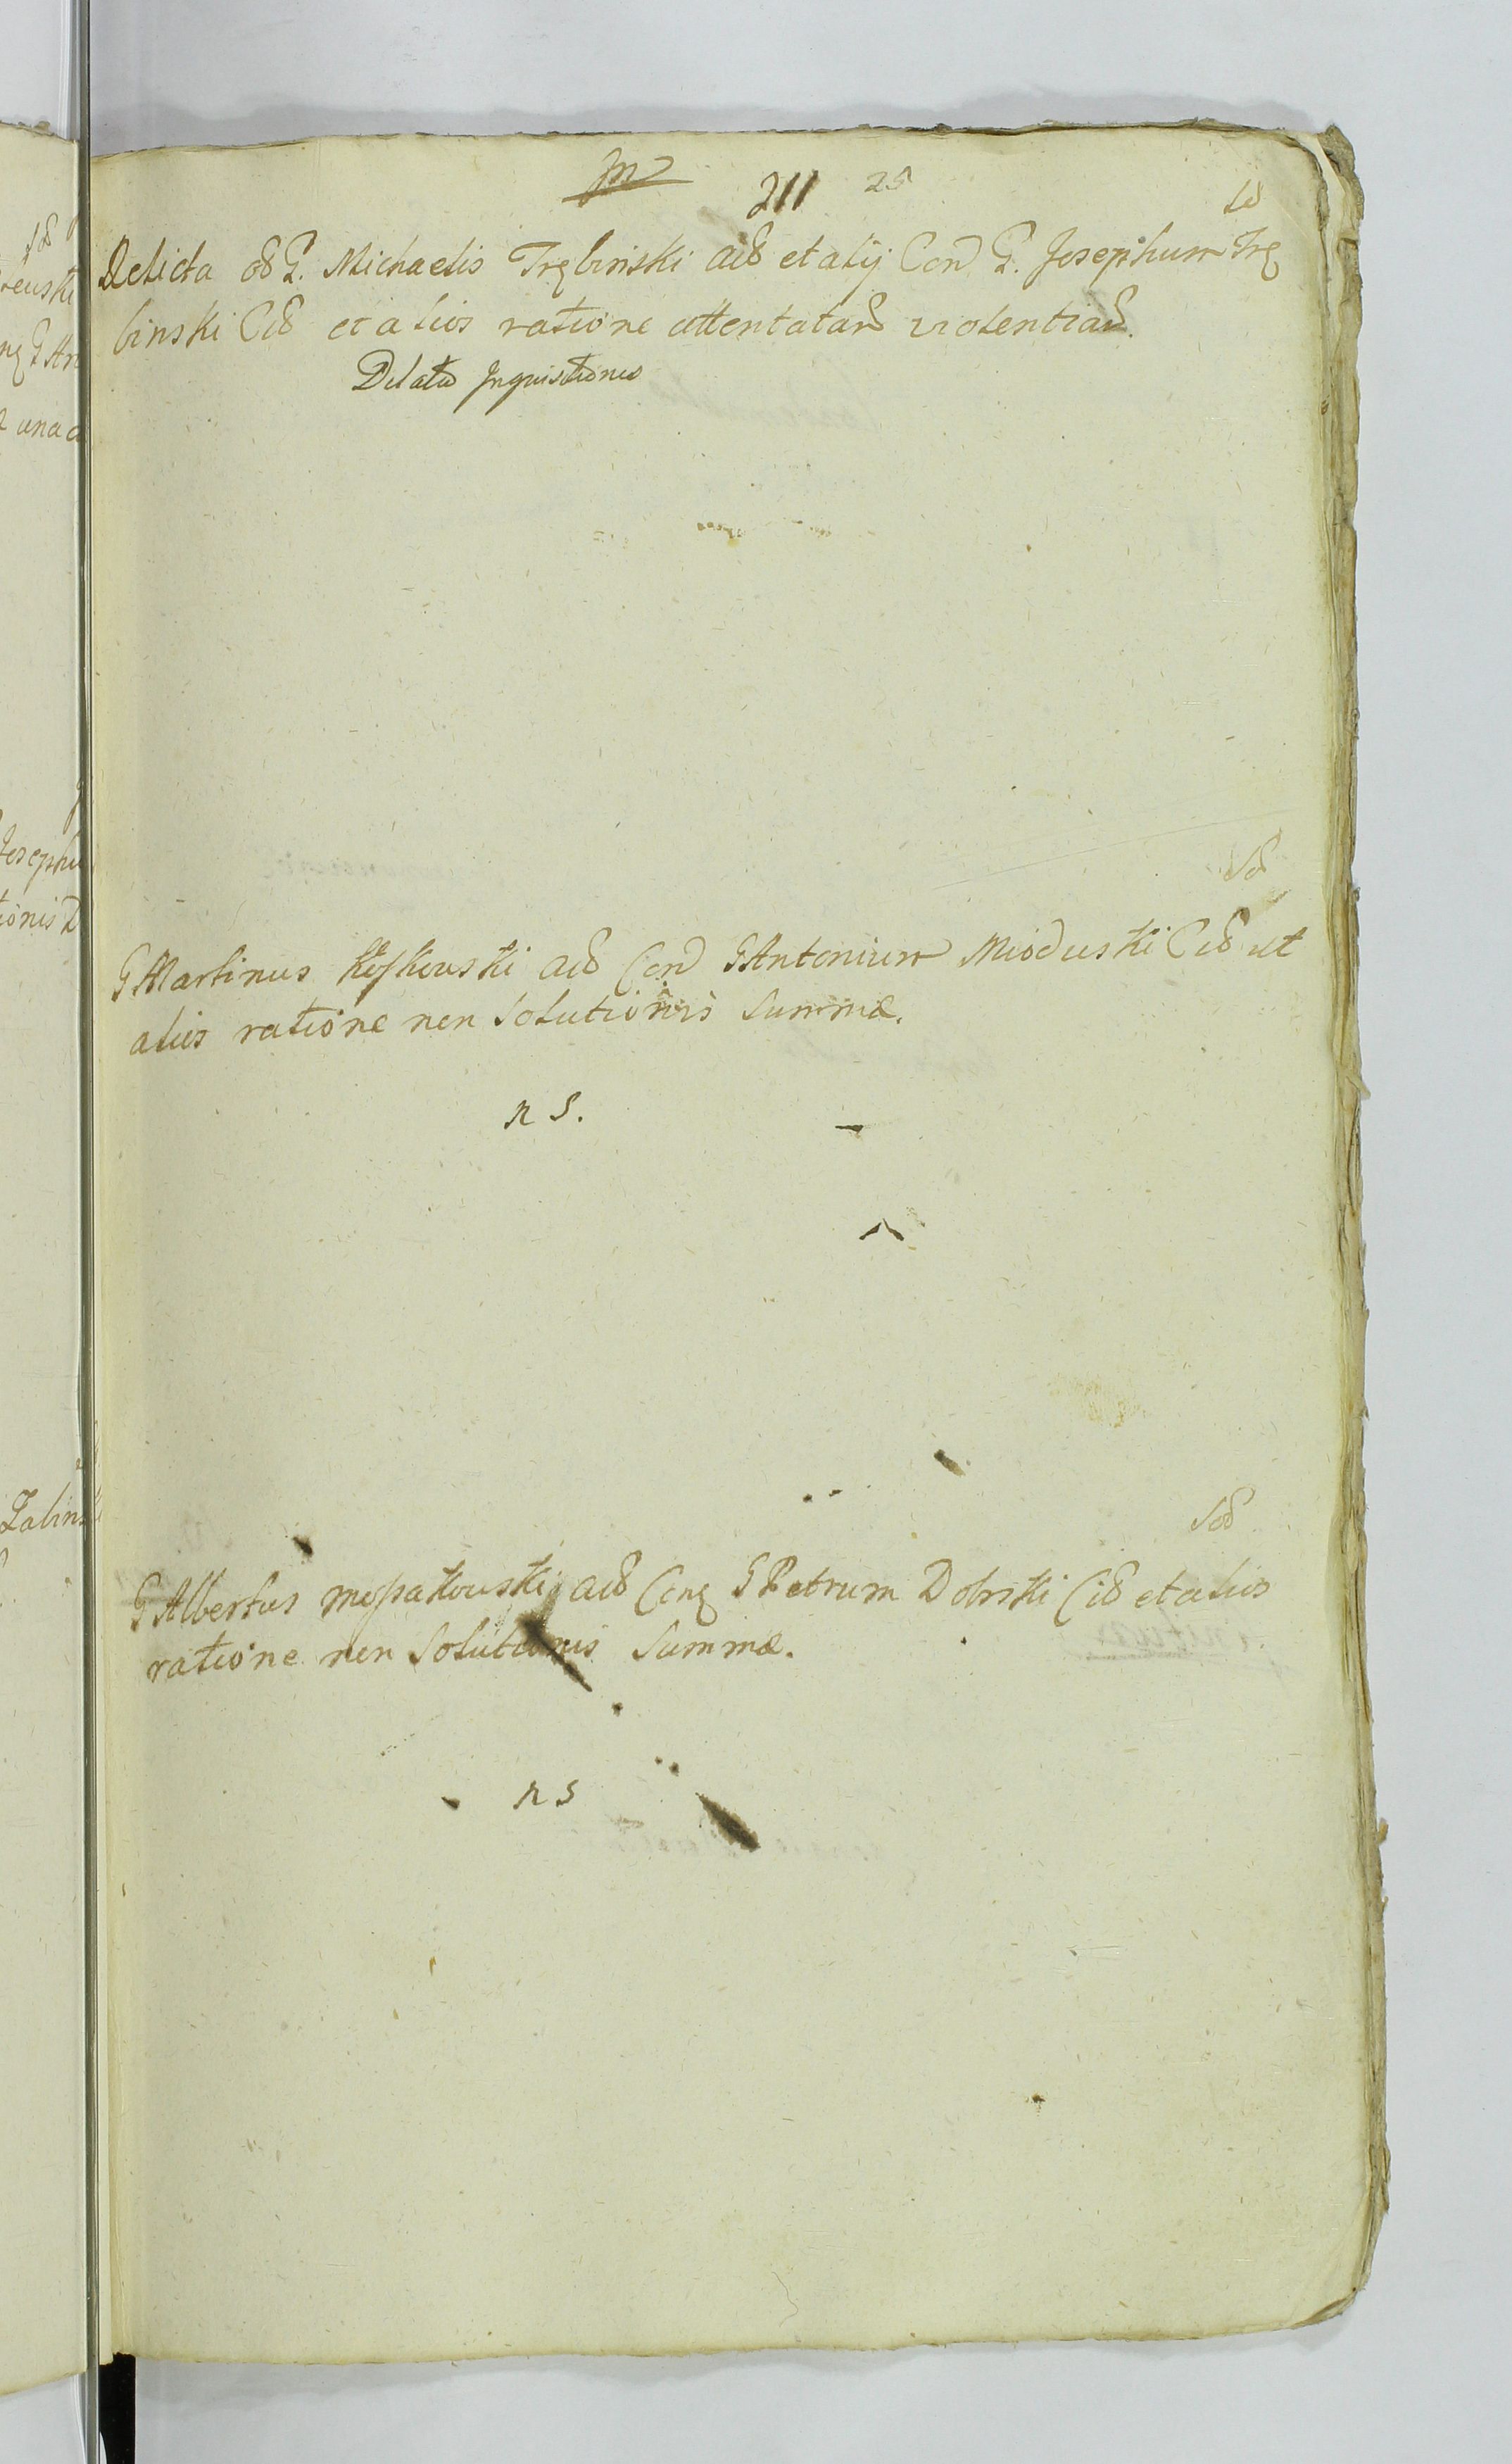 211 25
Delicta ob G. Michaelis Trębinski acŧ et alij Con G. Josephum Trę
binski Citt et alios ratione attentatar violentiar.
Dilata Inquisitiones
G Martinus acŧ Con G Antonium Mioduski Citt et
alios ratione non Solutionis Summæ.
n s.
G Albertus Mossakouski acŧ Con G Petrum Dobrski Citt et alios
ratione non Solutionis Summæ.
n s